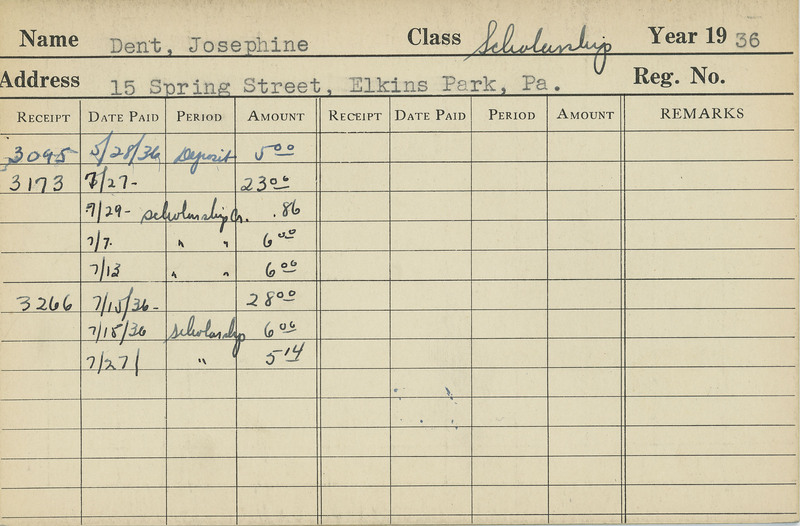 Name Dent, Josephine Class Scholarship Year 19 36
Address 15 Spring Street, Elkins Park, Pa. Reg. No.
RECEIPT DATE PAID PERIOD AMOUNT RECEIPT DATE PAID PERIOD AMOUNT REMARKS
3095 5/28/36 Deposit 5 00
3173 7/27- 23 00
7/29- Scholarship Cr. .86
7/7. " " 6 00
7/13 " " 6 00
3266 7/15/36- 28 00
7/15/36 Scholarship 6 00
7/27/ " 5 14